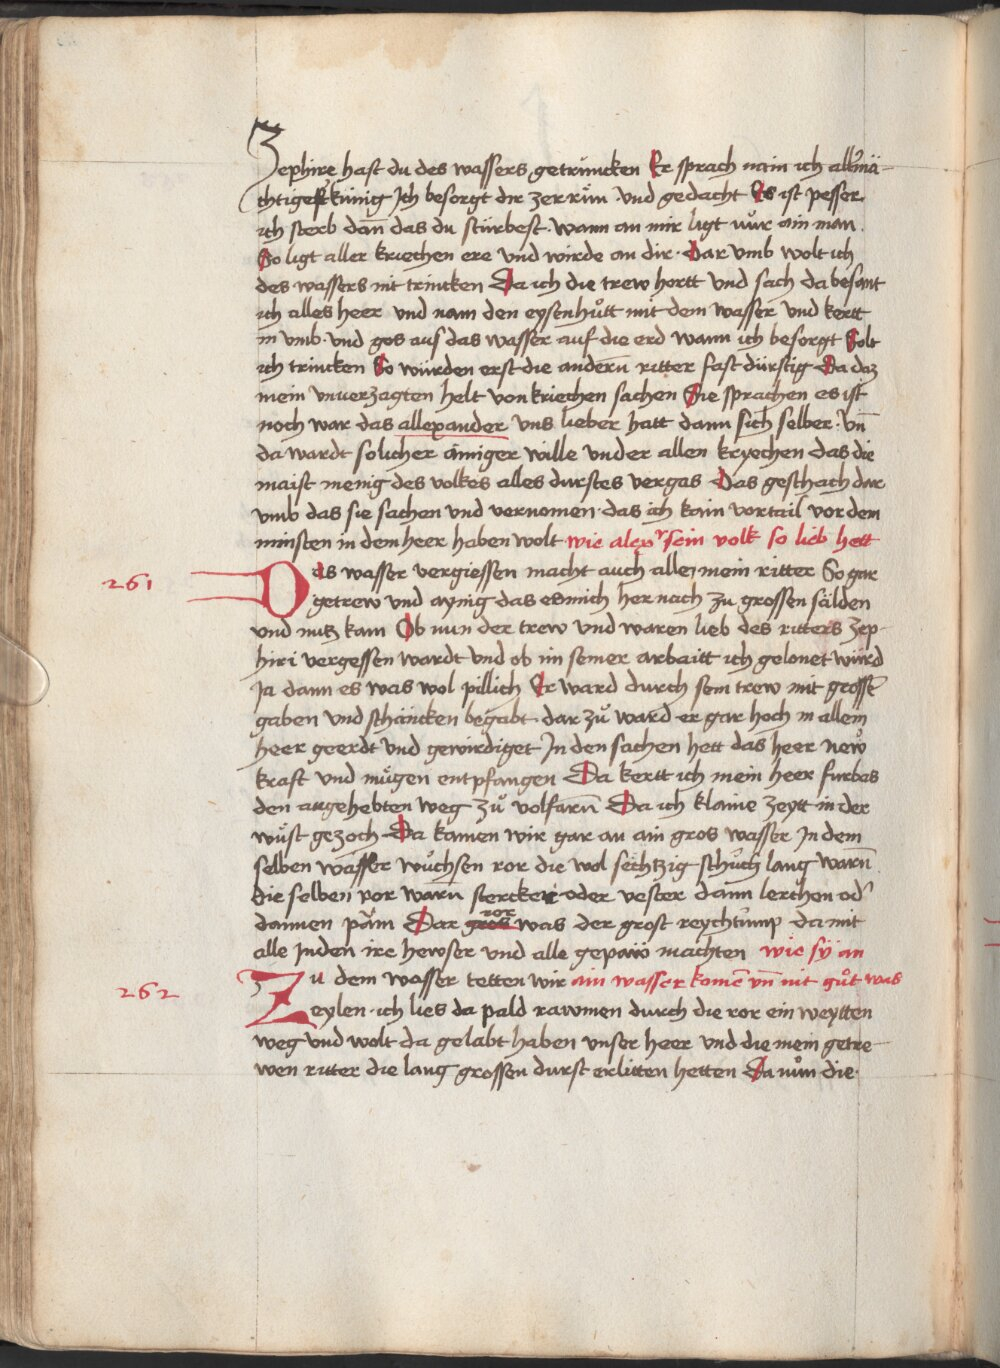 Zephire hast du des wassers getruncken Er sprach nain ich allmä-
chtigest künig Ich besorgt dir zerrün · vnd gedacht Es ist pesser
ich sterb dan̄ das du stürbest · wann an mir ligt nůr ain man
So ligt aller kriechen ere vnd wirde an dir · Dar vmb wolt ich
des wassers nit trincken Da ich die trew hortt vnd sach da besant
ich alles heer vnd nam den eysenhůtt mit dem wasser vnd kertt
in vmb · vnd gos aus das wasser auf die erd wann ich besorgt Solt
ich trincken So würden erst die andern̄ ritter fast dürstig Da daz
mein vnuerzagten helt von kriechen sachen Sie sprachen es ist
noch war das allexander vns lieber hatt dann sich selber · vn̄
da wardt solicher ainiger wille vnder allen kryechen das die
maist menig des volkes alles durstes vergas Das geschach dar
vmb das sie sachen vnd vernomen · das ich kain vortail vor dem
minsten in dem heer haben wolt wie alexr sein volk so lieb hett
261 Das wasser vergiessen macht auch alle mein ritter So gar
getrew vnd aynig das es mich her nach zu grossen sälden
vnd nutz kam Ob nun der trew vnd waren lieb des ritters zep-
hiri vergessen wardt vnd ob im seiner arbaitt ich gelonet würd
Ja dann es was wol pillich Er ward durch sein trew mit grossē
gaben vnd schäncken begabt · dar zů ward er gar hoch in allem
heer geerdt vnd gewirdiget In den sachen hett das heer new
kraft vnd mügen entpfangen Da kertt ich mein heer furbas
den angehebten weg zů volfarn̄ Da ich klaine zeytt in der
wüst gezoch Da kamen wir gar an ain gros wasser In dem
selben wasser wůchsen ror die wol sechtzig schůch lang warn̄
die selben ror warn̄ stercker oder vester dann lerchen od'
dannen päm Dar gros ror was der grost reychtump da mit
alle Inden ire hewser vnd alle gepaw machten wie sÿ an
262 Zu dem wasser tetten wir ain wasser komē vn̄ nit gůt was
zeylen · ich lies da pald rawmen durch die ror ein weytten
weg vnd wolt da gelabt haben vnser heer vnd die mein getre-
wen ritter die lang grossen durst erlitten hetten Da nům die ·